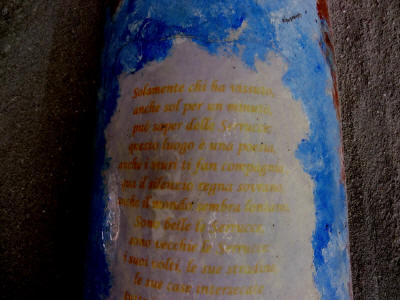 Solamente chi ha vissuto,
anche sol per un minuto,
può saper delle Serrucce,
questo luogo è una poesia,
anche i muri ti fan compagnia,
ma il silenzio regna sovrano
anche il mondo sembra lontano.
Sono belle le Serrucce,
sono vecchie le Serrucce,
i suoi volti, le sue stradine
le sue case intersecate